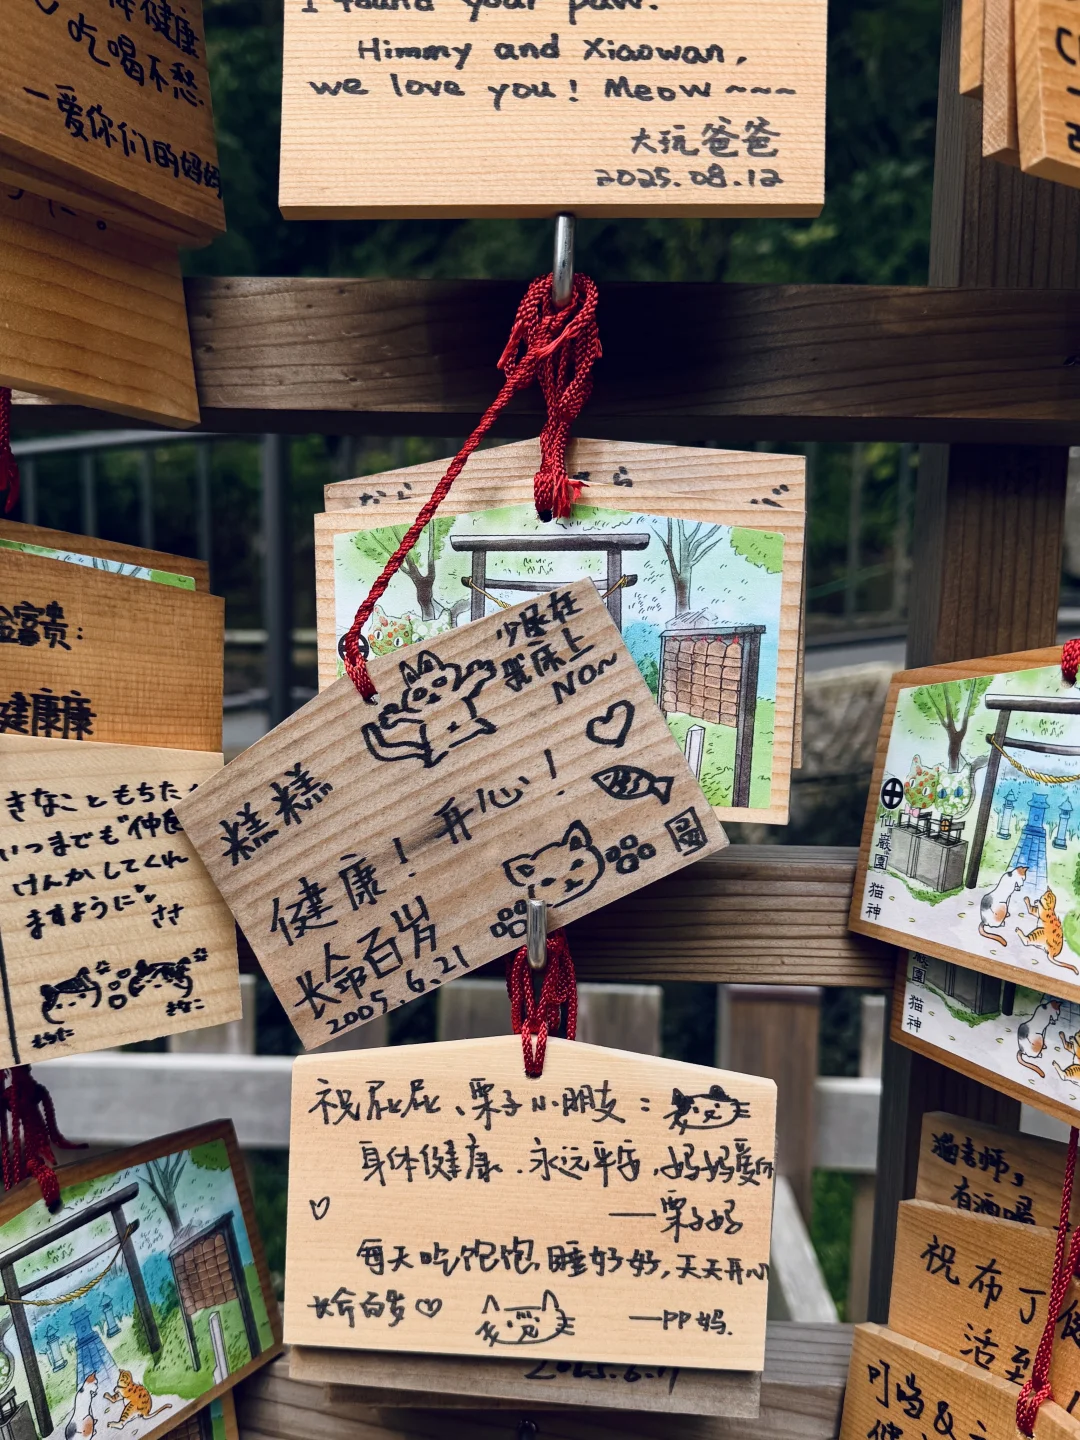 I found your paw.
Himmy and Xiaowan,
we love you! Meow~~~
大玩爸爸
2025.08.12
健康
吃喝不愁
一爱你们的妈妈
た。
富贵:
健康康
きなこともちた
いつまでも仲良
けんかしてくれ
ますように
ささ
もちた
きなこ
少尿在
我床上
NO~
糕糕
健康!开心!
长命百岁
2005.6.21
祝屁屁、栗子小朋友:
身体健康.永远平安,妈妈爱你
♡ —栗子妈
每天吃饱饱,睡好好,天天开心
长命百岁♡ —PP妈.
仙巌園 猫神
巌園 猫神
猫老师,
有酒喝
祝布丁
活至
叮当&
健